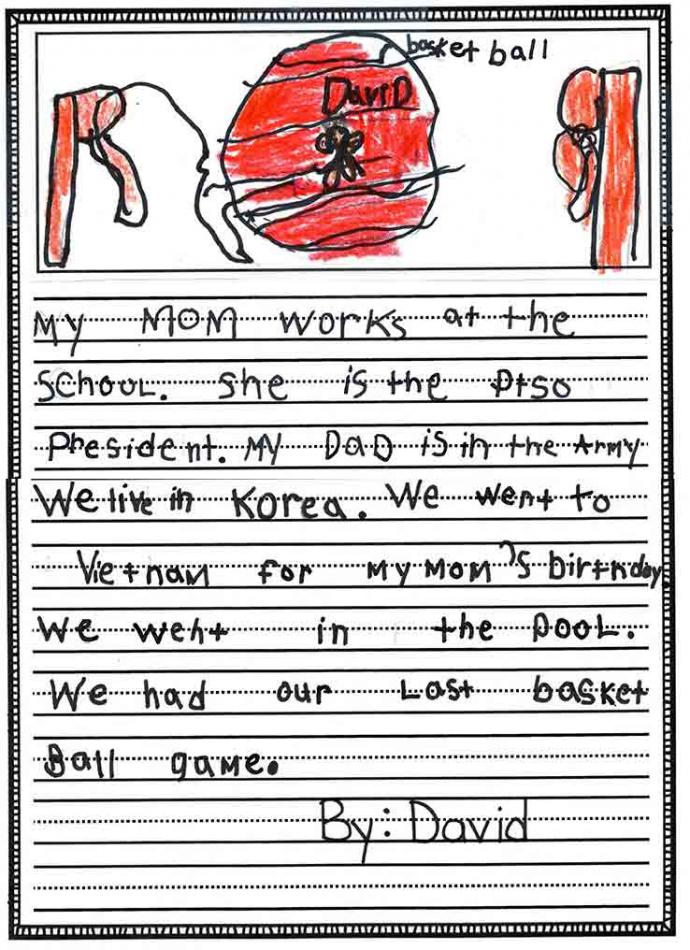 basket ball
DaviD
My MOM works at the
SCHOOL. She is the Ptso
President. MY DaD is in the Army
We live in Korea. We went to
Vietnam for my Mom's birthday.
We went in the pooL.
We had our Last basket
Ball game.
By: David